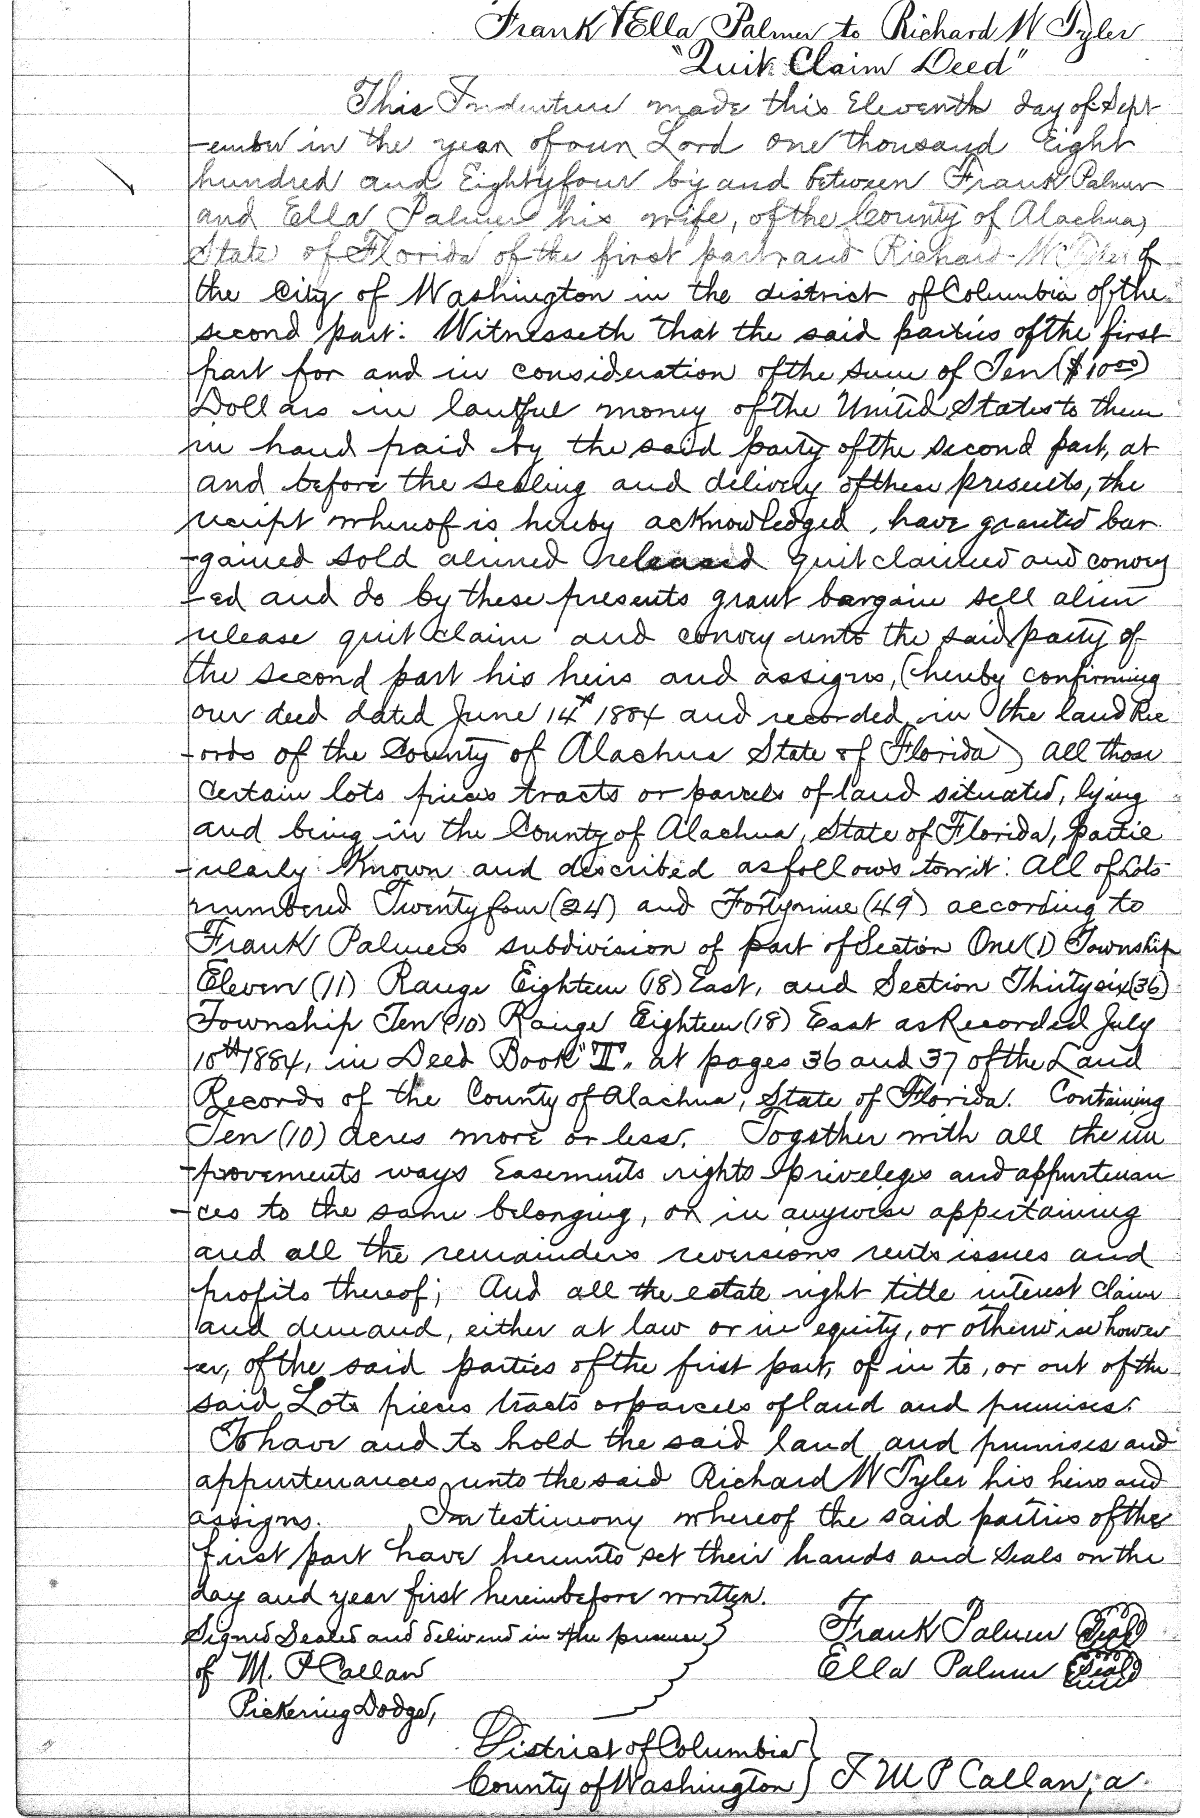 Frank & Ella Palmer to Richard W Tyler
"Quit Claim Deed"
This Indenture made this Eleventh day of Sept
-ember in the year of our Lord one thousand Eight
hundred and Eightyfour by and between Frank Palmer
and Ella Palmer his wife, of the County of Alachua,
State of Florida of the first part and Richard W Tyler of
the City of Washington in the district of Columbia of the
second part: Witnesseth that the said parties of the first
part for and in consideration of the sum of Ten ($10 00)
Dollars in lawful money of the United States to them
in hand paid by the said party of the second part, at
and before the sealing and delivery of these presents, the
receipt whereof is hereby acknowledged, have granted bar
-gained sold aliened released quit claimed and convey
-ed and do by these presents grant bargain sell alien
release quit claim and convey unto the said party of
the second part his heirs and assigns, (hereby confirming
our deed dated June 14th 1884 and recorded in the land Rec
-ords of the County of Alachua State of Florida) all those
certain lots pieces tracts or parcels of land situated, lying
and being in the County of Alachua, State of Florida, partic
-ularly Known and described as follows towit: All of Lots
numbered Twentyfour (24) and Fortynine (49) according to
Frank Palmers subdivision of part of Section One (1) Township
Eleven (11) Range Eighteen (18) East, and Section Thirtysix (36)
Township Ten (10) Range Eighteen (18) East as Recorded July
10th 1884, in Deed Book "T". at pages 36 and 37 of the Land
Records of the County of Alachua, State of Florida. Containing
Ten (10) acres more or less. Together with all the im
-provements ways Easements rights priveleges and appurtenan
-ces to the same belonging, or in anywise appertaining
and all the remainders reversions rents issues and
profits thereof; And all the estate right title interest claim
and demand, either at law or in equity, or otherwise howev
-er, of the said parties of the first part, of in to, or out of the
said Lots pieces tracts or parcels of land and premises.
To have and to hold the said land and premises and
appurtenances unto the said Richard W Tyler his heirs and
assigns. In testimony whereof the said parties of the
first part have hereunto set their hands and seals on the
day and year first hereinbefore written.
Signed Sealed and delivered in the presence } Frank Palmer Seal
of M. P Callan Ella Palmer Seal
Pickering Dodge,
District of Columbia }
County of Washington } I M P Callan, a